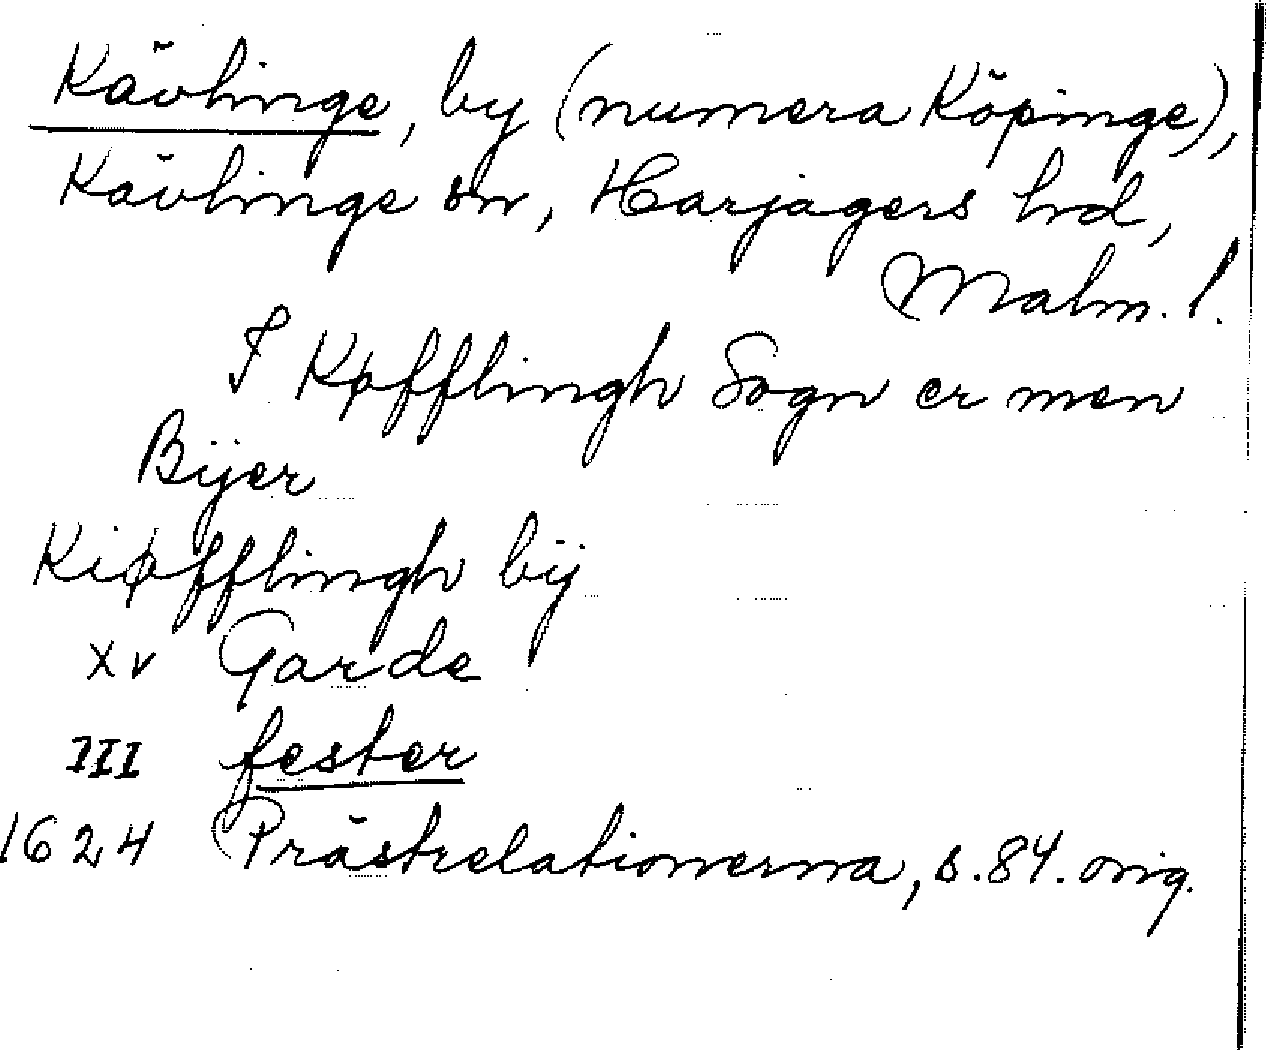 Kävlinge, by (numera Köpinge),
Kävlinge sn, Harjagers hrd,
Malm. l.
I Køfflingh Sogn er men
Bÿer
Kiøfflingh bÿ
xv Garde
III fester
1624 Prästrelationerna, s. 84. orig.